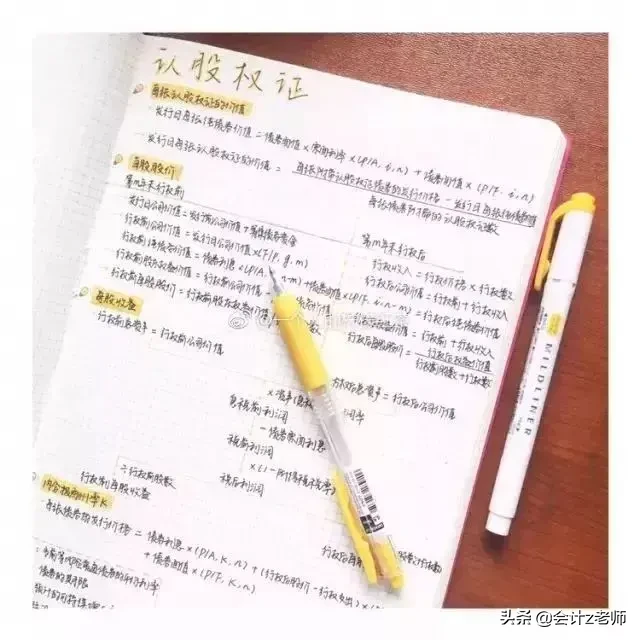 认股权证
每张认股权证的价值
发行日每张纯债券价值 = 债券面值 × 票面利率 × (P/A, i, n) + 债券面值 × (P/F, i, n)
发行日每张认股权证的价值 = 每张附带认股权证债券的发行价格 - 发行日每张纯债券价值
每张债券所附的认股权证数
每股股价
第m年末行权前
发行日公司价值 = 发行前公司价值 +
行权前公司价值 = 发行日公司价值 × (F/P, g, m)
行权前纯债券价值 = 债券利息 × (P/A, + 债券面值 × (P/F, i, n-m)
行权前股东权益价值 = 行权前公司价值
行权前每股股价 = 行权前股东权益价值
第m年末行权后
行权收入 = 行权价格 × 行权数
行权后公司价值 = 行权前 + 行权收入
= 行权前 + 行权收入
行权后每股股价 = 行权后权益价值
行权前股数 + 行权数
每股收益
行权前总资产 = 行权前公司价值
行权后总资产 = 行权后公司价值
息税前利润
- 债券票面利息
税前利润
× (1 - 所得税税率)
税后利润
÷ 行权前股数
行权前每股收益
内含报酬率K
每张债券的发行价格 = 债券利息 × (P/A, K, n) + (行权后股价 - 行权支出) ×
+ 债券面值 × (P/F, K, n)
债券的期限
MILDLINER
头条 @会计z老师